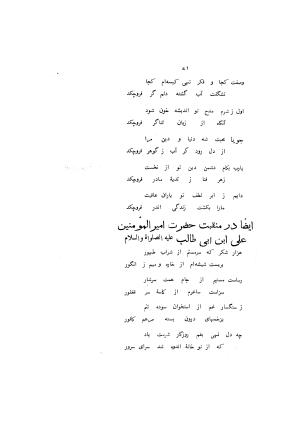 ۸۱
وصفت کجا و فکر تهی کیسه‌ام کجا
نشگفت آب گشته دلم گر فروچکد
اول ز شرم مدح تو اندیشه خون شود
آنگه از زبان ثناگر فروچکد
جویا محبت شه دنیا و دین مرا
از دل رود کز آب ز گوهر فروچکد
یارب بکام دشمن دین تو از نخست
زهر فنا ز ثدیهٔ مادر فروچکد
دایم ز ابر لطف تو باران عافیت
مارا بکشت زندگی اندر فروچکد
ایضا در منقبت حضرت امیرالمؤمنین
علی ابن ابی طالب علیه الصلوة والسلام
هزار شکر که سرمستم از شراب طهور
پرست شیشه‌ام از خایه و میم ز انگور
رساست مستیم از جام همت سرشار
سزاست ساغرم از کاسهٔ سر فغفور
ز سنگسار غم از استخوان سوده تنم
بزخمهای درون بسته مرهم کافور
چه دل نهی بغم روزگار شرمت باد
که از تو خانهٔ اندوه شد سرای سرور